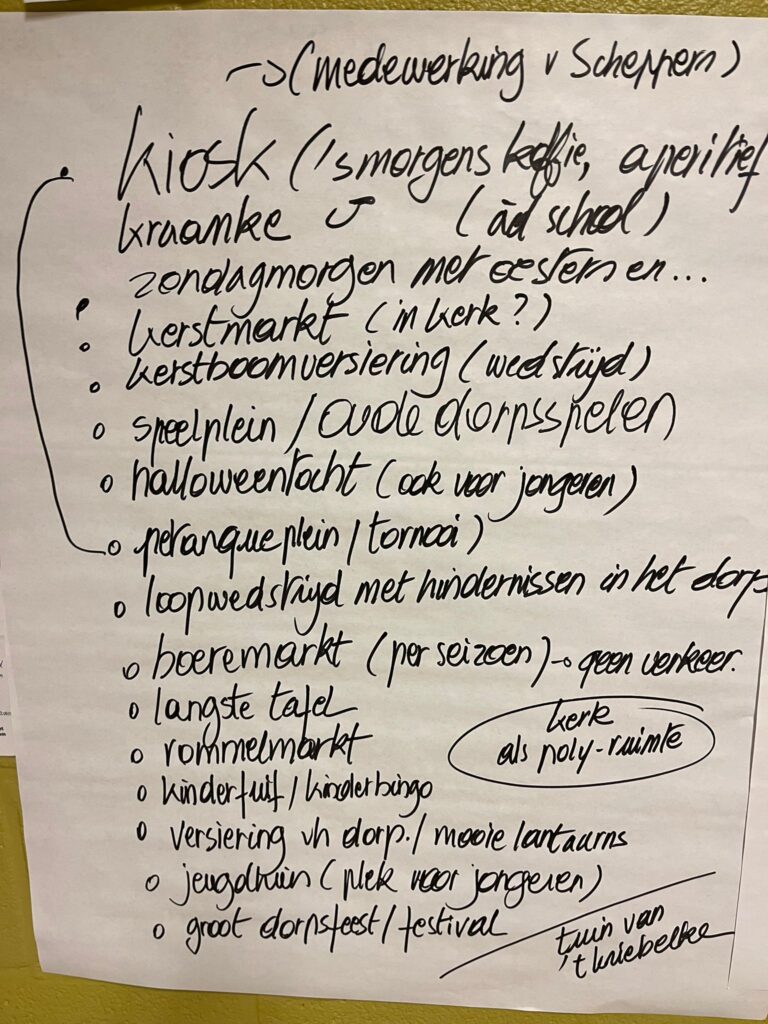 → (medewerking v Scheppers)
• kiosk ('s morgens koffie, aperitief
kraamke (àd school)
zondagmorgen met oesters en ...
° kerstmarkt (in kerk?)
° kerstboomversiering (wedstrijd)
° speelplein / oude dorpsspelen
° halloweentocht (ook voor jongeren)
° petanqueplein / tornooi)
° loopwedstrijd met hindernissen in het dorp
° boeremarkt (per seizoen) → geen verkeer.
° langste tafel
° rommelmarkt
kerk
als poly-ruimte
° kinderfuif / kinderbingo
° versiering vh dorp. / mooie lantaarns
° jeugdtuin (plek voor jongeren)
° groot dorpsfeest / festival
tuin van
't kriebelke